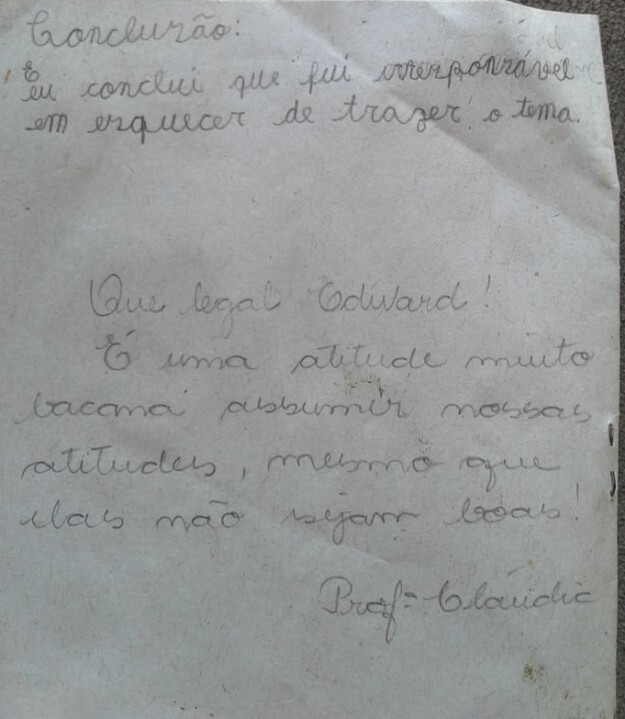 Conclusão:
Eu conclui que fui irresponsável
em esquecer de trazer o tema.
Que legal Edward!
É uma atitude muito
bacana assumir nossas
atitudes, mesmo que
elas não sejam boas!
Profª Cláudia